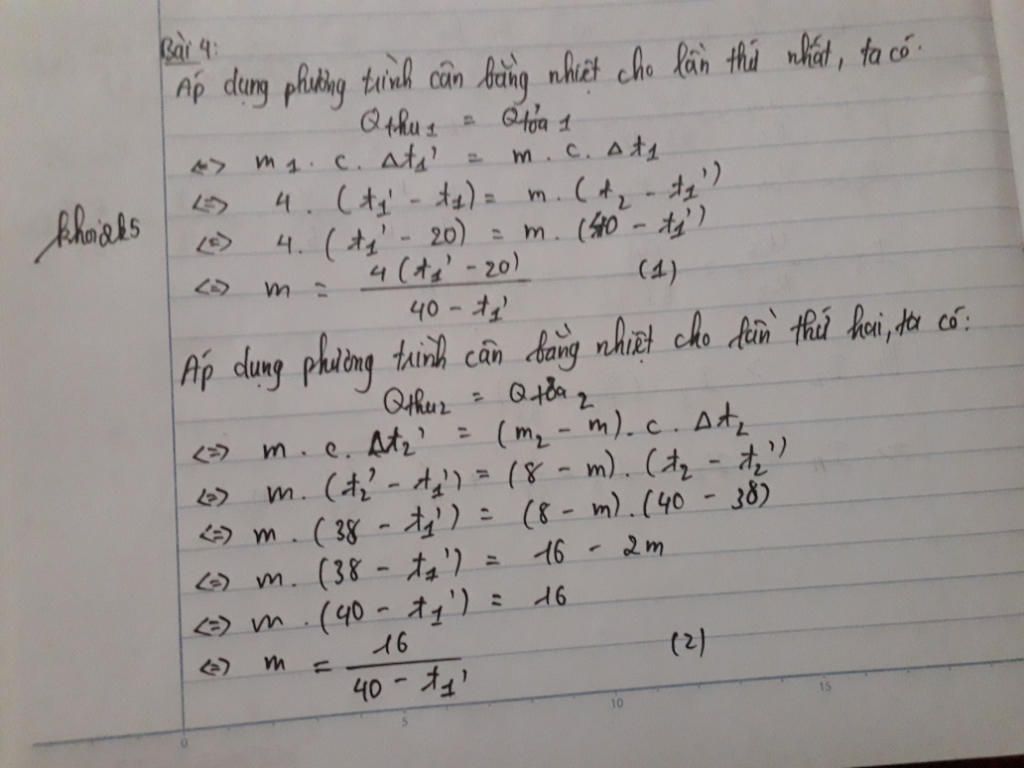 Bài 4:
Áp dụng phương trình cân bằng nhiệt cho lần thứ nhất, ta có.
Qthu1 = Qtỏa1
<=> m1. c. Δt1' = m. c. Δt1
<=> 4. (t1' - t1) = m. (t2 - t1')
<=> 4. (t1' - 20) = m. (40 - t1')
<=> m = 4(t1' - 20) / 40 - t1' (1)
Áp dụng phương trình cân bằng nhiệt cho lần thứ hai, ta có:
Qthu2 = Qtỏa2
<=> m. c. Δt2' = (m2 - m). c. Δt2
<=> m. (t2' - t1') = (8 - m). (t2 - t2')
<=> m. (38 - t1') = (8 - m). (40 - 38)
<=> m. (38 - t1') = 16 - 2m
<=> m. (40 - t1') = 16
<=> m = 16 / 40 - t1' (2)
0 5 10 15